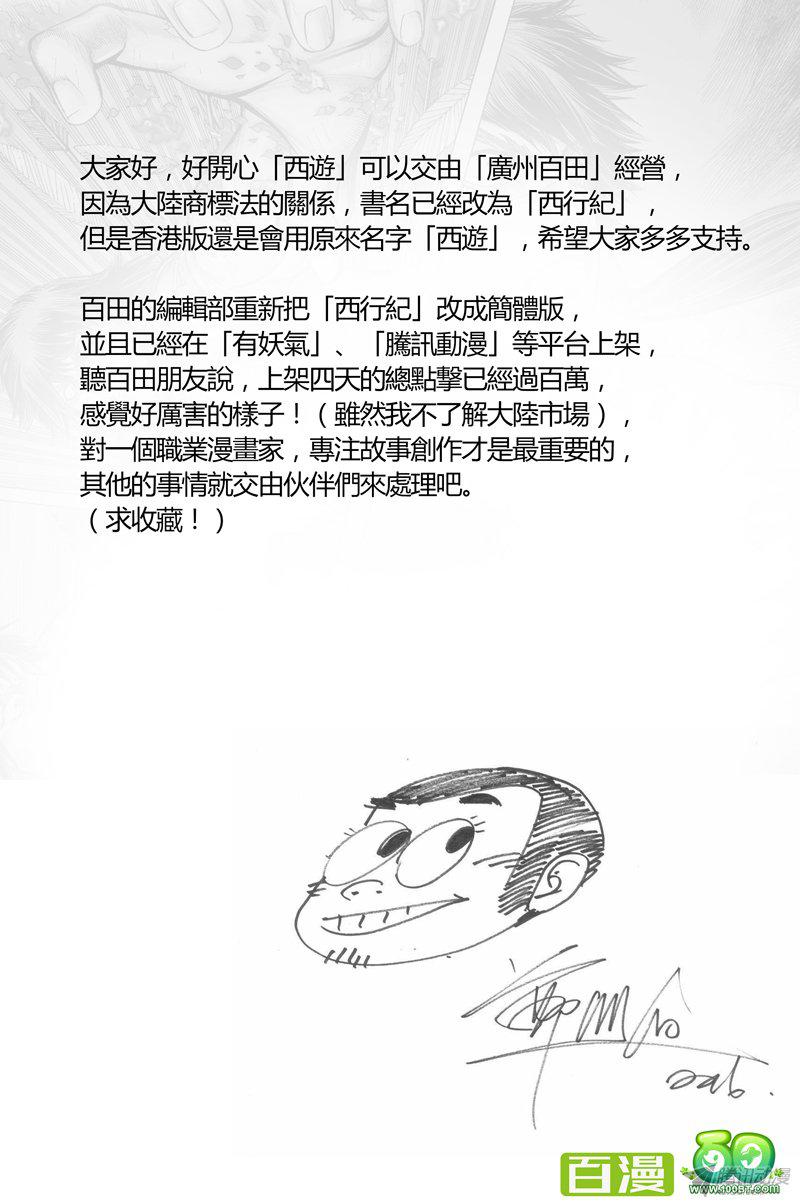 大家好，好開心「西遊」可以交由「廣州百田」經營，
因為大陸商標法的關係，書名已經改為「西行紀」，
但是香港版還是會用原來名字「西遊」，希望大家多多支持。
百田的編輯部重新把「西行紀」改成簡體版，
並且已經在「有妖氣」、「騰訊動漫」等平台上架，
聽百田朋友說，上架四天的總點擊已經過百萬，
感覺好厲害的樣子！（雖然我不了解大陸市場），
對一個職業漫畫家，專注故事創作才是最重要的，
其他的事情就交由伙伴們來處理吧。
（求收藏！）
百漫
www.100bt.com